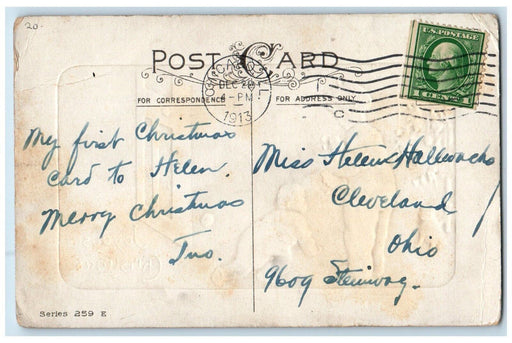 20-
POST CARD
DEC 20
4-PM
1913
FOR CORRESPONDENCE
FOR ADDRESS ONLY
C
U.S. POSTAGE
My first Christmas
card to Helen.
Merry Christmas
Jno.
Miss Helen Hallwachs
Cleveland
Ohio
9609 Steinway.
Series 259 E